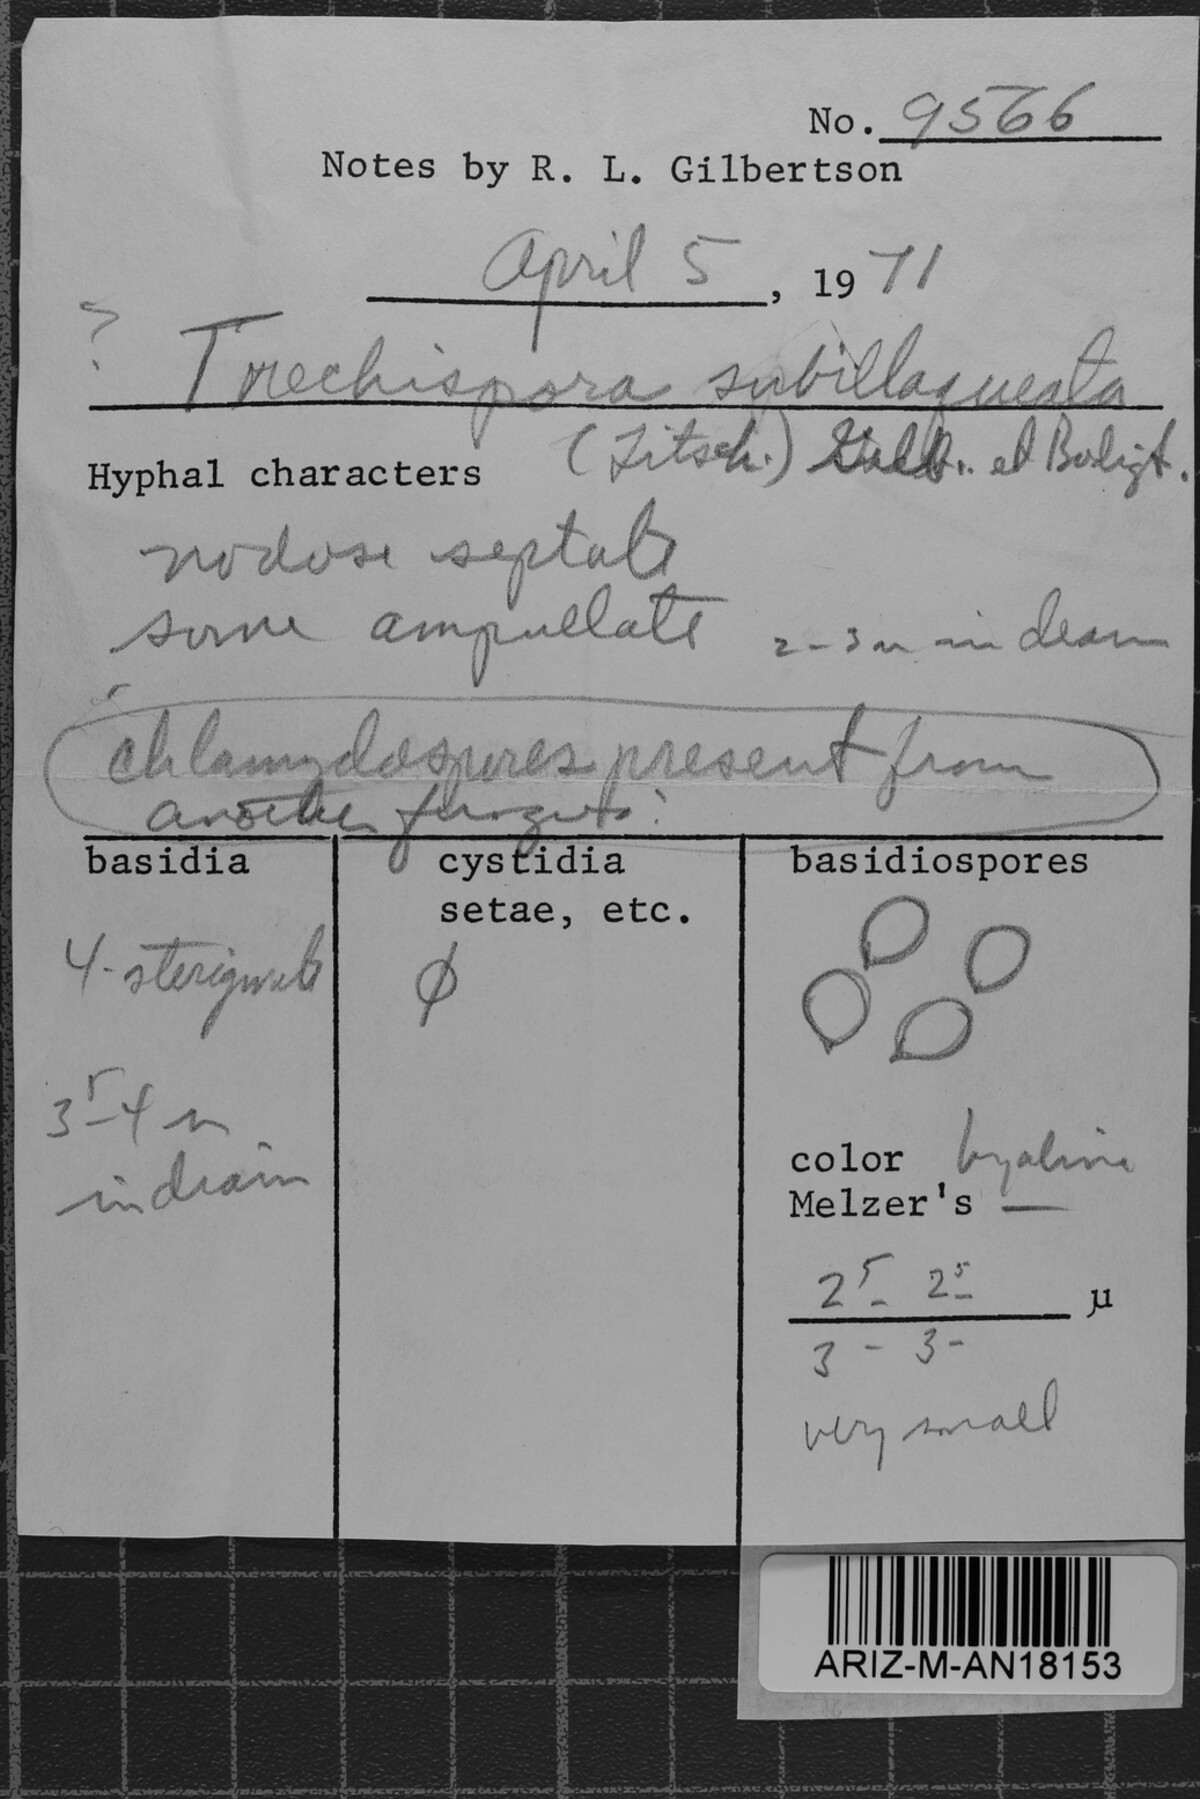 No. 9566
Notes by R. L. Gilbertson
April 5, 1971
? Trechispora subillaqueata
(Litsch.) et Budigt.
Hyphal characters
nodose septate
some ampullate 2-3 u in diam
chlamydospores present from
another fungus?
basidia
4-sterigmate
3⁵-4 u
in diam
cystidia
setae, etc.
ϕ
basidiospores
color hyaline
Melzer's —
2⁵- 2⁵- µ
3 - 3-
very small
ARIZ-M-AN18153